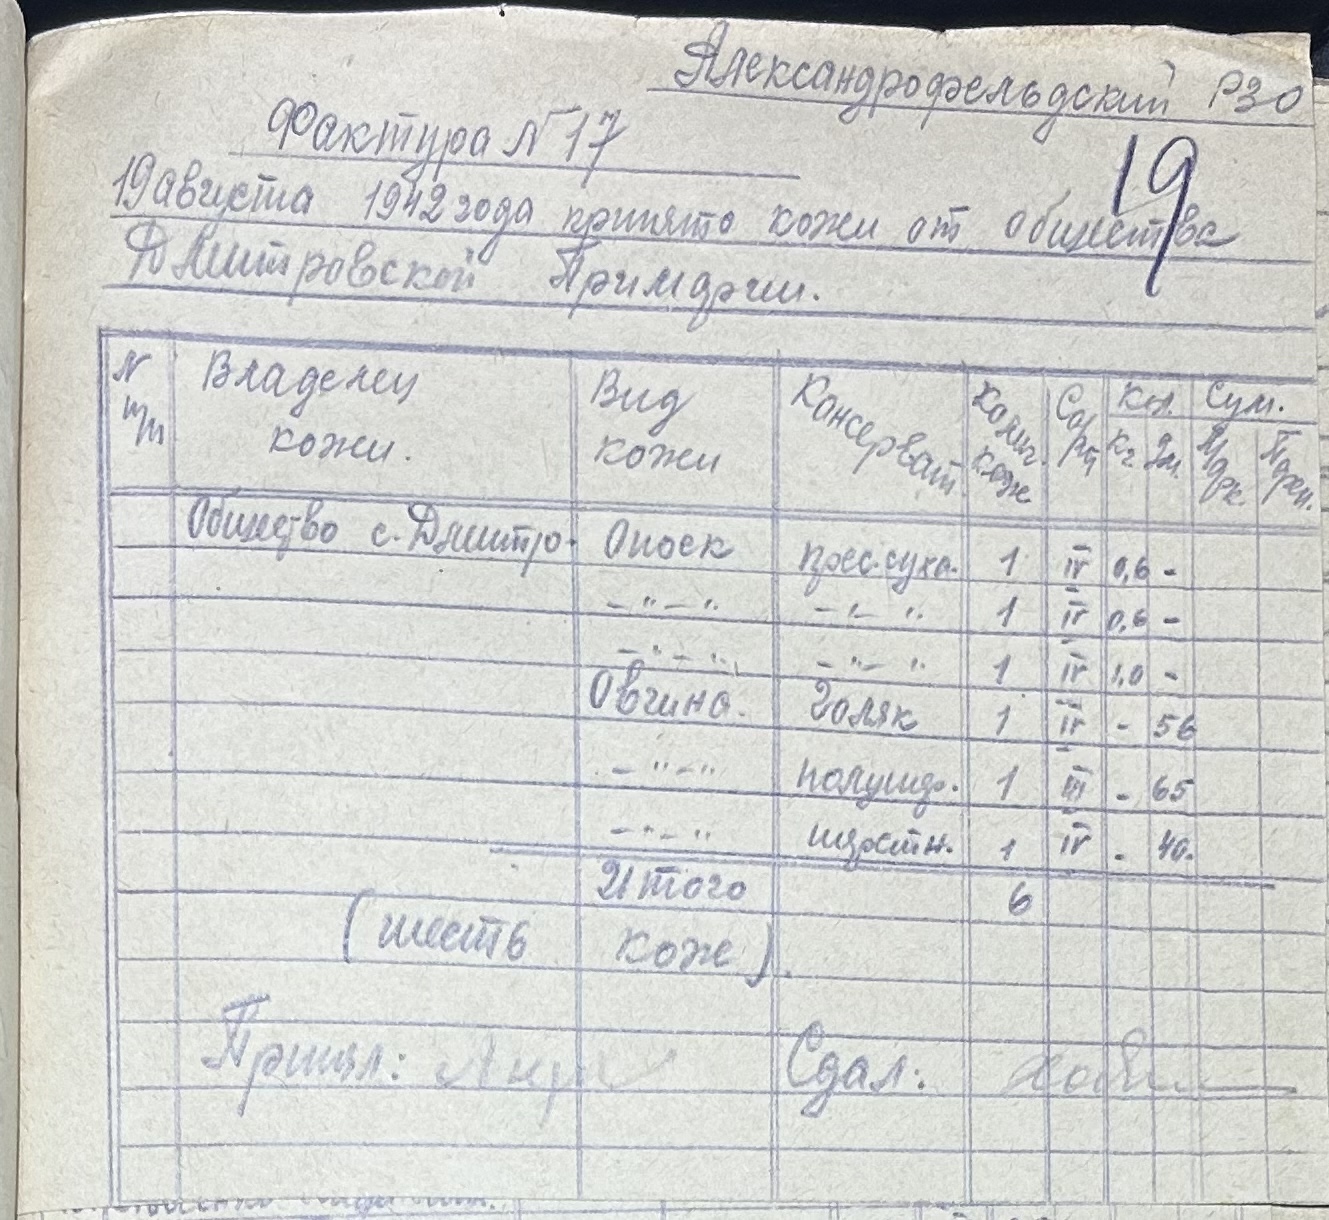 Александрофельдский РЗО
Фактура N 17
19
19 августа 1942 года принято кожи от общества
Дмитровской Примэрии.
N п/п Владелец кожи. Вид кожи Консерват. Колич. кож Сорт Кол. Кг Дм. Сум. Марк. Пфен.
Общество с. Дмитро. Опоек прес.сухо. 1 IV 0,6 -
-"-" -"-" 1 IV 0,6 -
-"-" -"-" 1 IV 1,0 -
Овчина. Голяк 1 IV - 56
-"-" полушер. 1 III - 65
-"-" шерстн. 1 IV - 40.
Итого 6
(шесть коже).
Принял: Сдал: